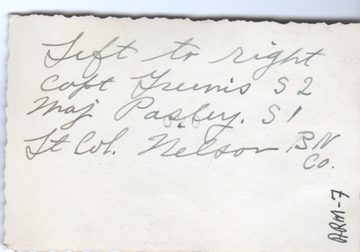 Left to right
Capt Grems S2
Maj Pasley. S1
Lt Col. Nelson BN
Co.
ARM-7